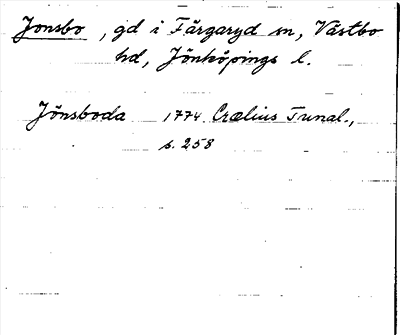 Jonsbo, gd i Färgaryd sn, Västbo
hd, Jönköpings l.
Jönsboda 1774 Crælius Tunal.,
s. 258